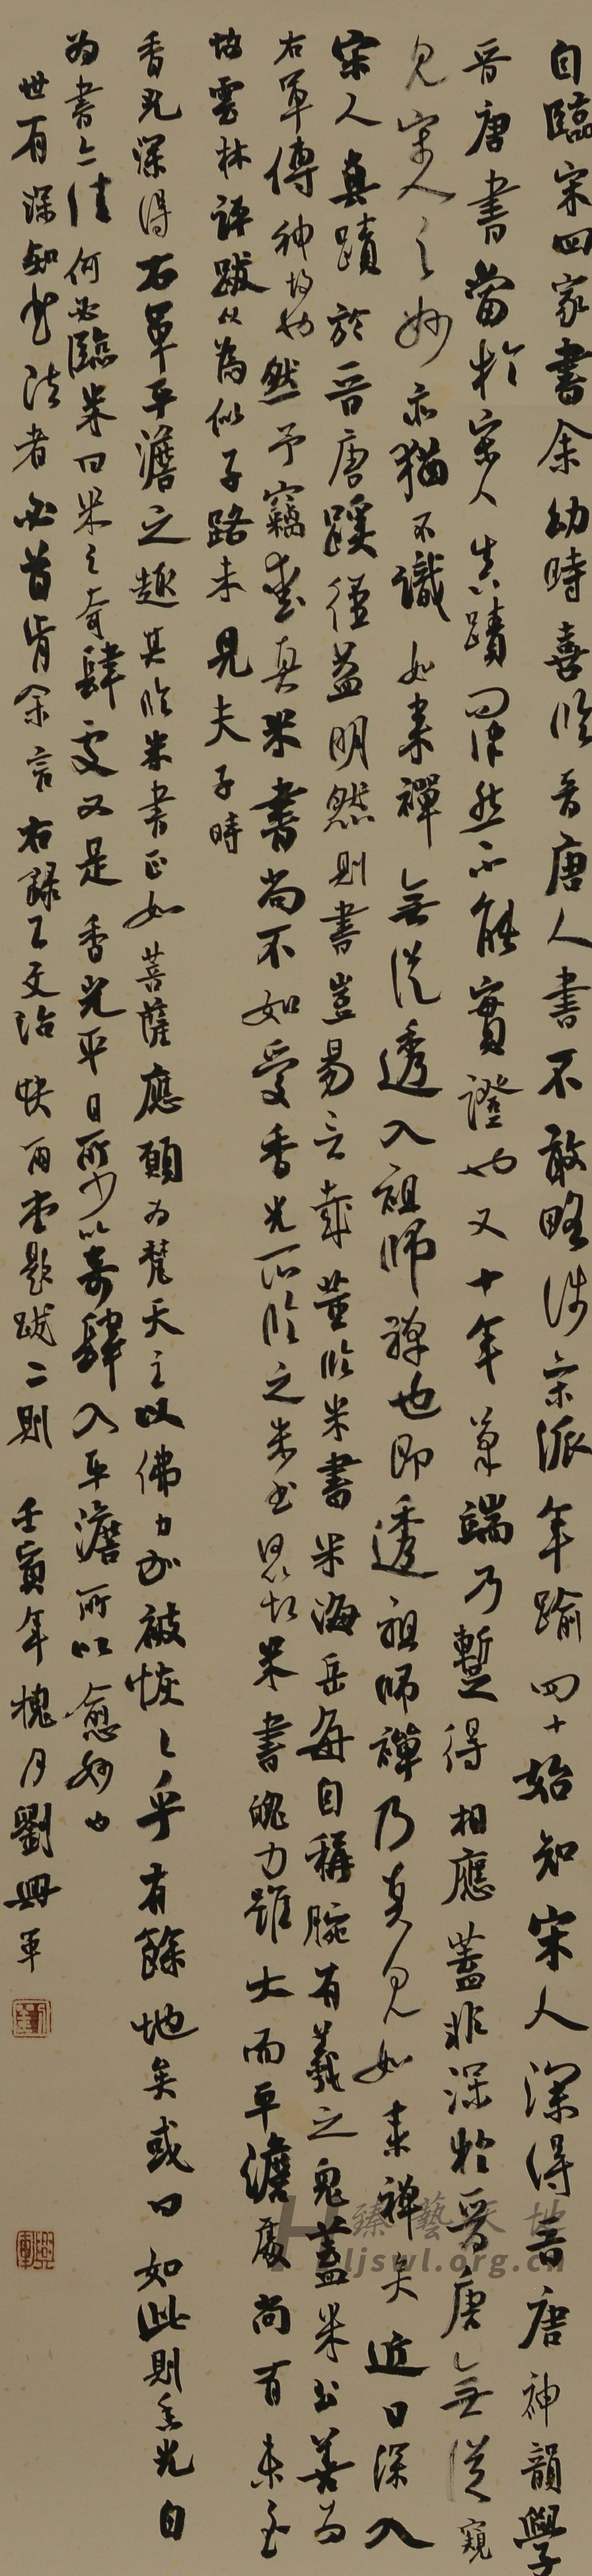 自臨宋四家書余幼時喜臨晉唐人書不敢略涉宋派年踰四十始知宋人深得晉唐神韻學
晉唐書當於宋人真蹟問津然不能實證也又十年筆端乃暫得相應蓋非深於晉唐無從窺
見宋人之妙亦猶不識如來禪無從透入祖師禪也即透祖師禪乃真見如來禪矣近日深入
宋人真蹟於晉唐蹊徑益明然則書豈易言哉董臨米書米海岳每自稱腕有羲之鬼蓋米書善為
右軍傳神故也然予竊意真米書尚不如受香光所臨之米書思翁米書魄力雖大而平澹處尚有未至
坡雲林評跋以為似子路未見夫子時
香光深得右軍平澹之趣其臨米書正如菩薩應願為梵天主以佛力加被恢恢乎有餘地矣或曰如此則香光自
為書亦佳何必臨米曰米之奇肆處又是香光平日所少以奇肆入平澹所以愈妙也
世有深知書法者必首肯余言右錄王文治快雨堂題跋二則 壬寅年槐月劉興軍
臻藝天地
ljswl.org.cn